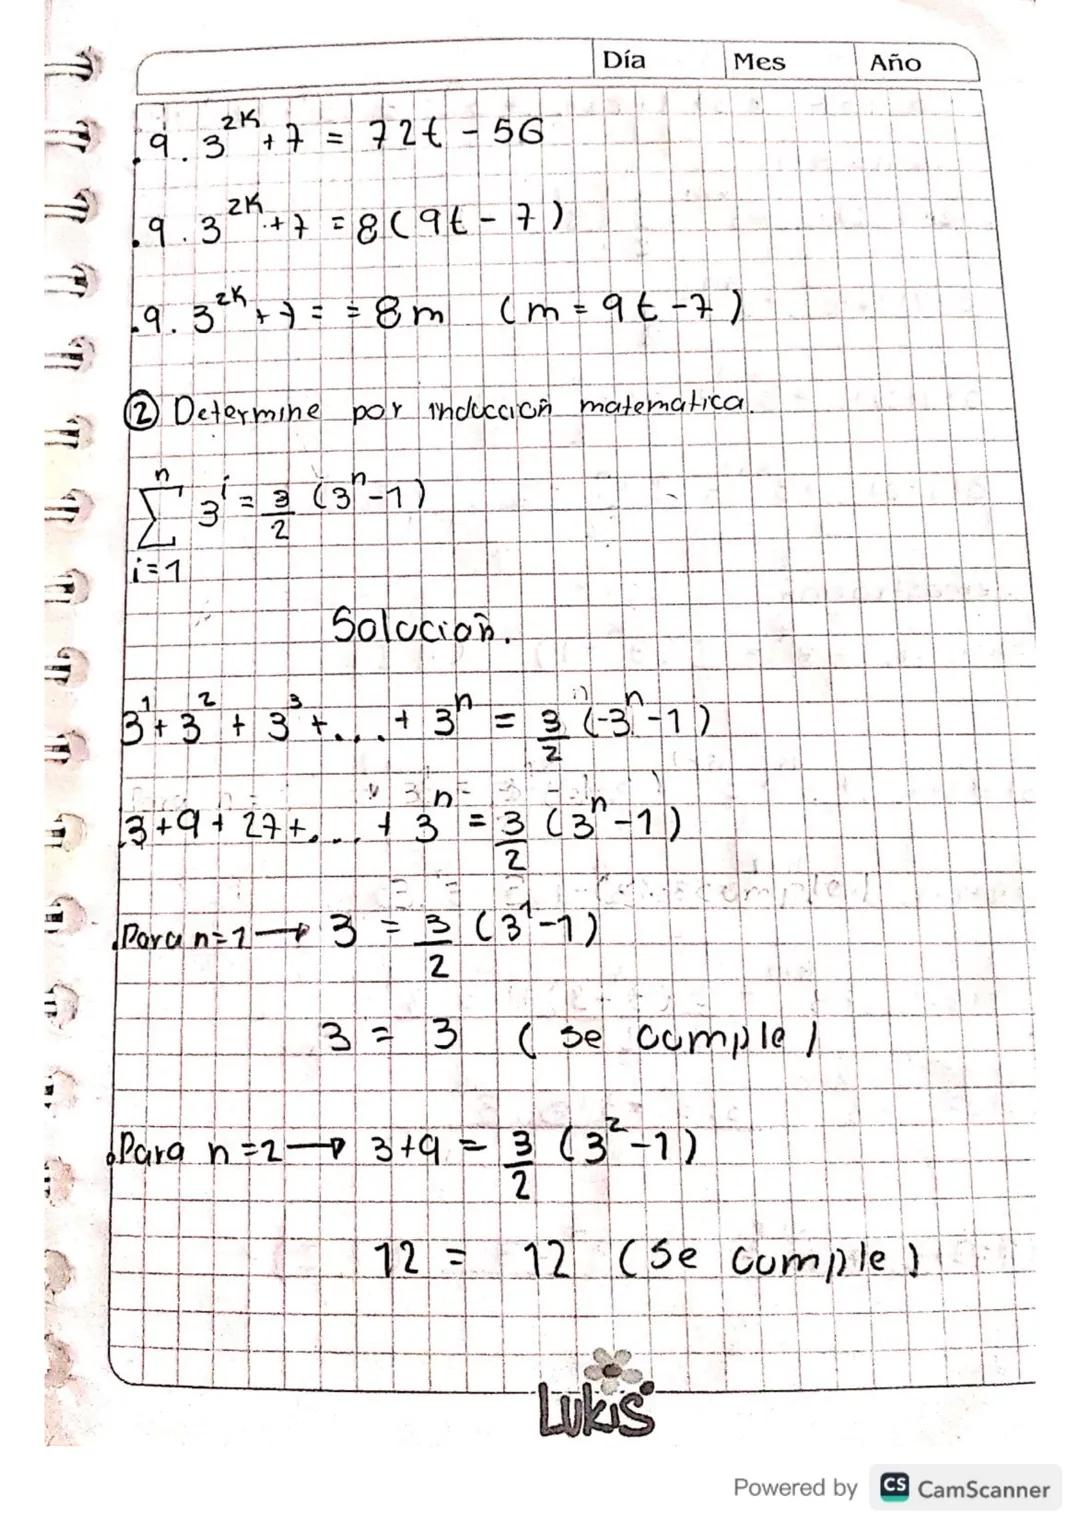 Día Mes Año
.9. 3^2K + 7 = 72t - 56
.9. 3^2K + 7 = 8 (9t - 7)
.9. 3^2K + 7 = = 8m (m = 9t - 7)
② Determine por inducción matematica.
n
∑ 3^i = 3/2 (3^n - 1)
i = 1
Solución.
3^1 + 3^2 + 3^3 + ... + 3^n = 3/2 (-3^n - 1)
3 + 9 + 27 + ... + 3^n = 3/2 (3^n - 1)
.Para n=1 → 3 = 3/2 (3^1 - 1)
3 = 3 (se cumple)
.Para n=2 → 3+9 = 3/2 (3^2 - 1)
12 = 12 (se cumple)
Lukis
Powered by CS CamScanner